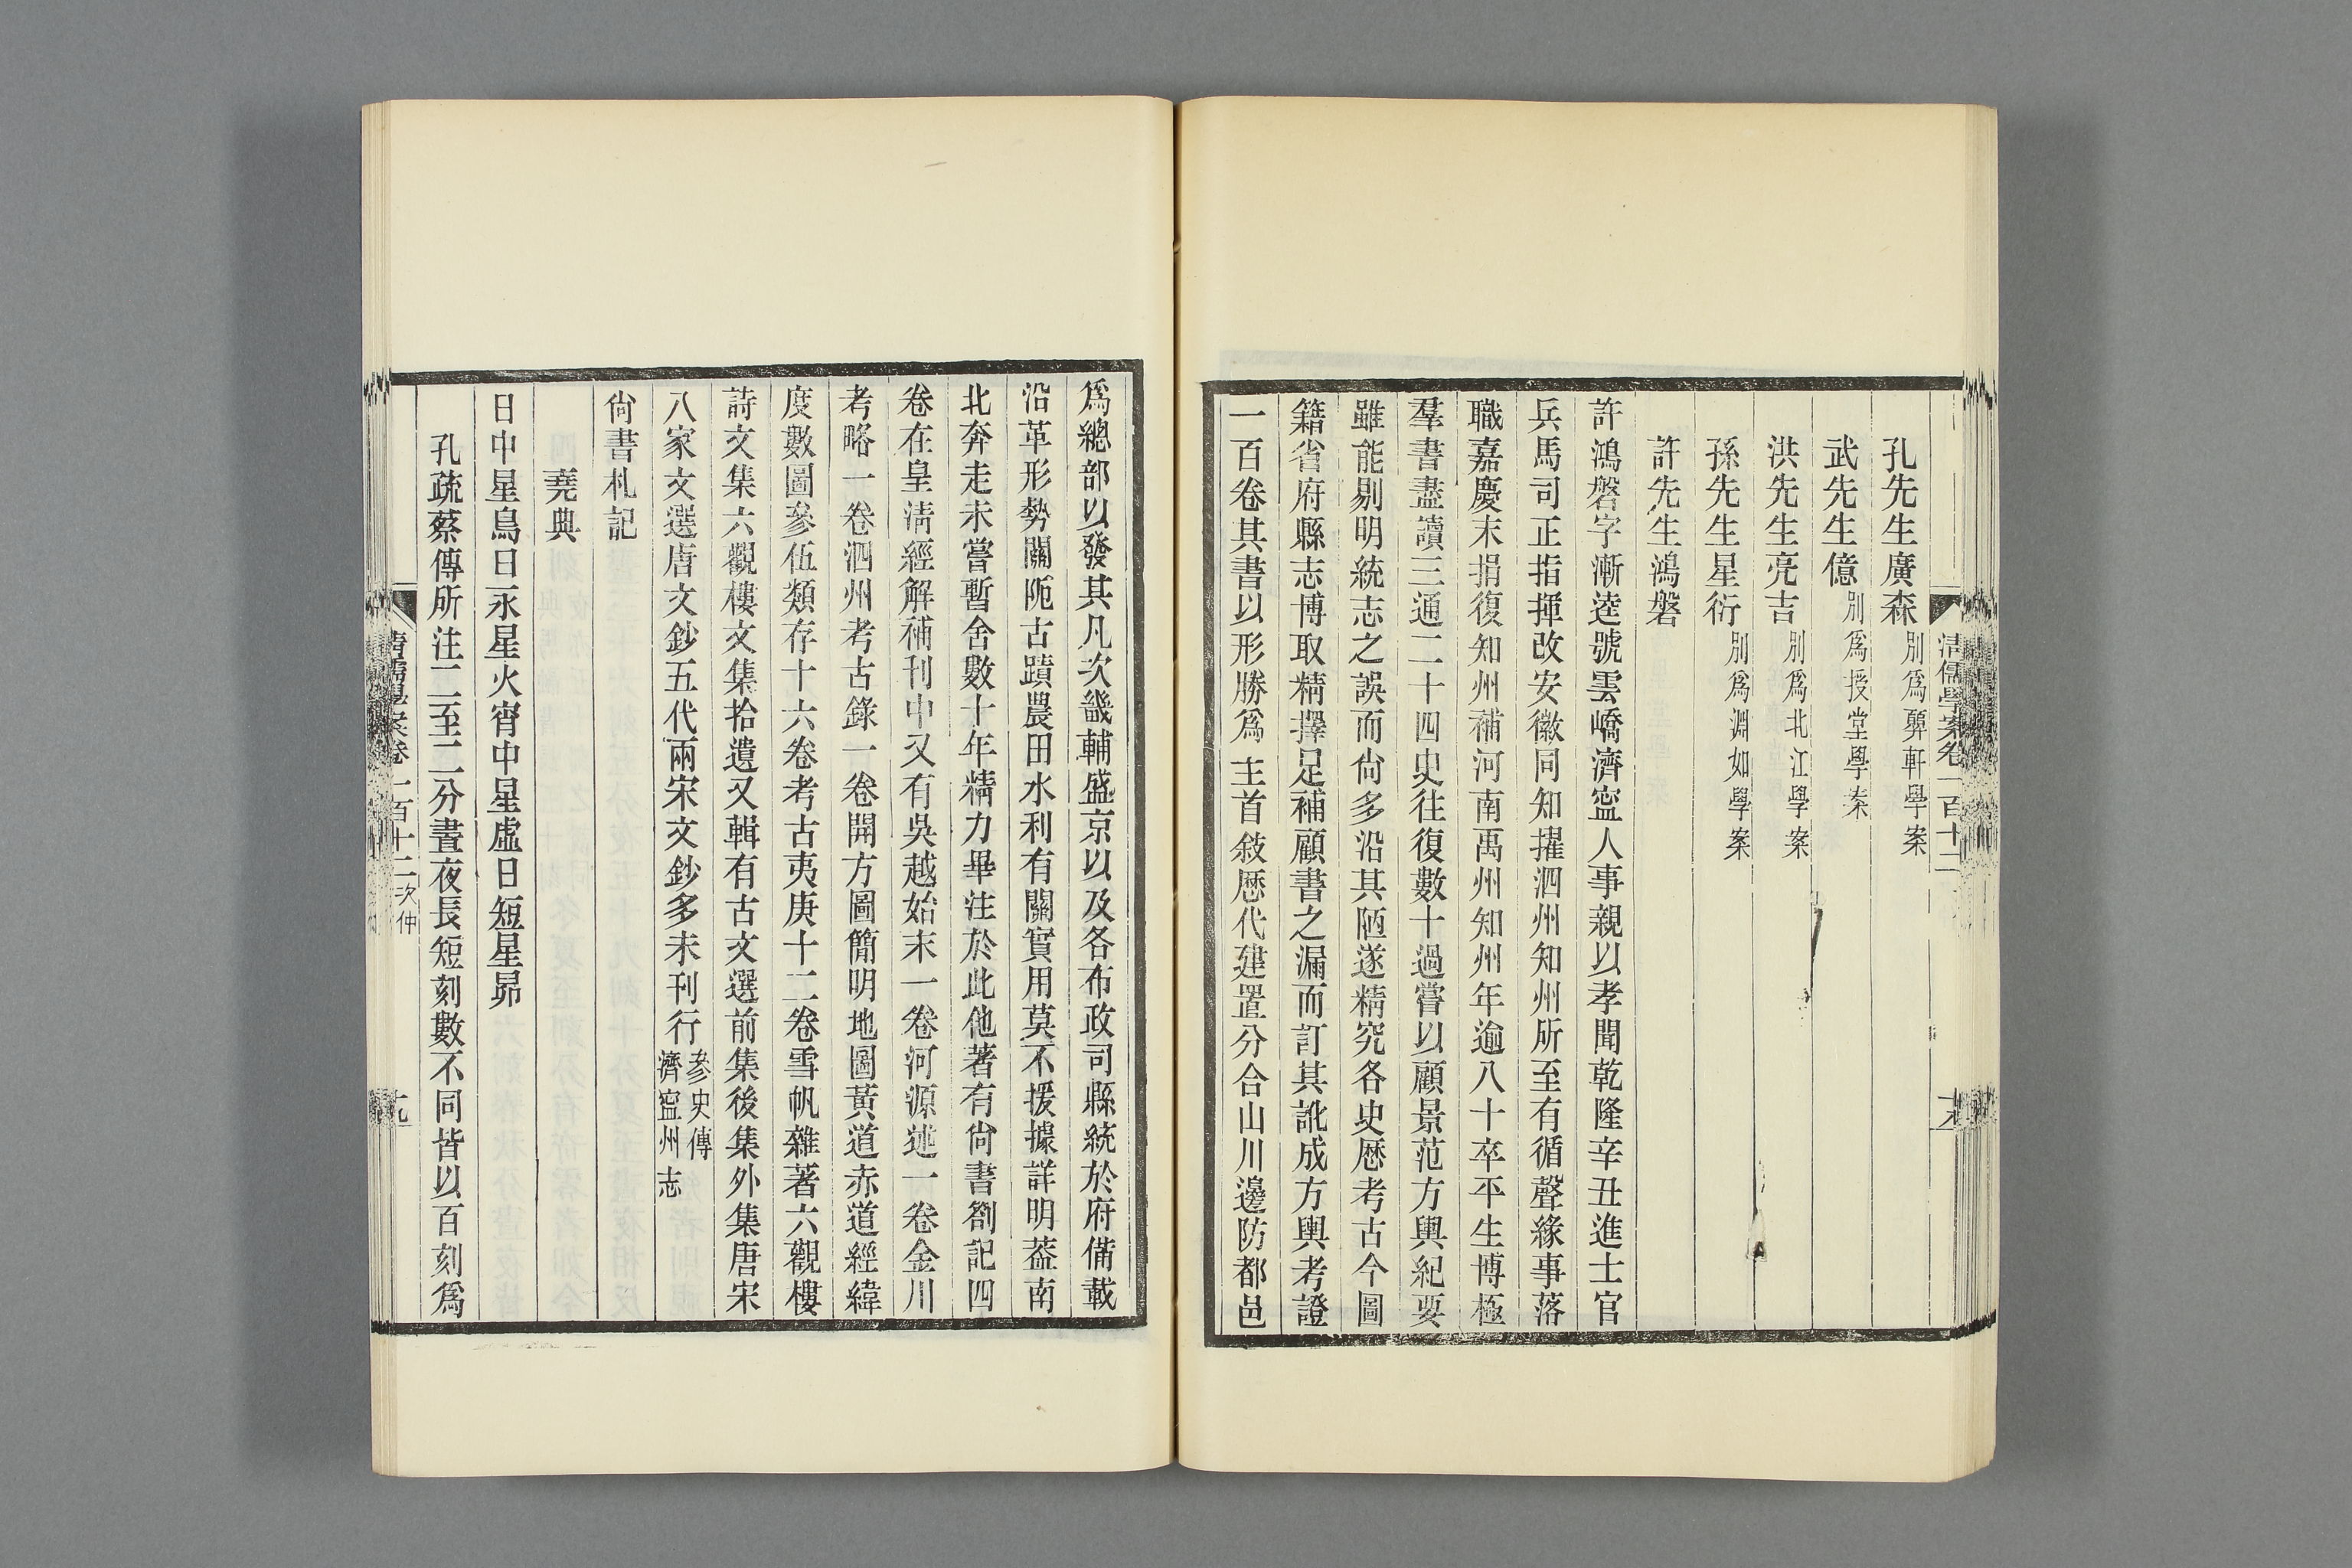 清儒學案卷一百十二
十八
孔先生廣森別爲顨軒學案
武先生億別爲授堂學案
洪先生亮吉別爲北江學案
孫先生星衍別爲淵如學案
許先生鴻磐
許鴻磐字漸逵號雲嶠濟寍人事親以孝聞乾隆辛丑進士官
兵馬司正指揮改安徽同知擢泗州知州所至有循聲緣事落
職嘉慶末捐復知州補河南禹州知州年逾八十卒平生博極
羣書盡讀三通二十四史往復數十過嘗以顧景范方輿紀要
雖能剔明統志之誤而尙多沿其陋遂精究各史歷考古今圖
籍省府縣志博取精擇足補顧書之漏而訂其訛成方輿考證
一百卷其書以形勝爲主首敍歷代建置分合山川邊防都邑
爲總部以發其凡次畿輔盛京以及各布政司縣統於府備載
沿革形勢關阨古蹟農田水利有關實用莫不援據詳明葢南
北奔走未嘗暫舍數十年精力畢注於此他著有尙書劄記四
卷在皇淸經解補刊中又有吳越始末一卷河源述一卷金川
考略一卷泗州考古錄一卷開方圖簡明地圖黃道赤道經緯
度數圖參伍類存十六卷考古夷庚十二卷雪帆雜著六觀樓
詩文集六觀樓文集拾遺又輯有古文選前集後集外集唐宋
八家文選唐文鈔五代兩宋文鈔多未刊行參史傳
濟寍州志
尙書札記
堯典
日中星鳥日永星火宵中星虛日短星昴
孔疏蔡傳所注二至二分晝夜長短刻數不同皆以百刻爲
清儒學案卷一百十二次仲
十九